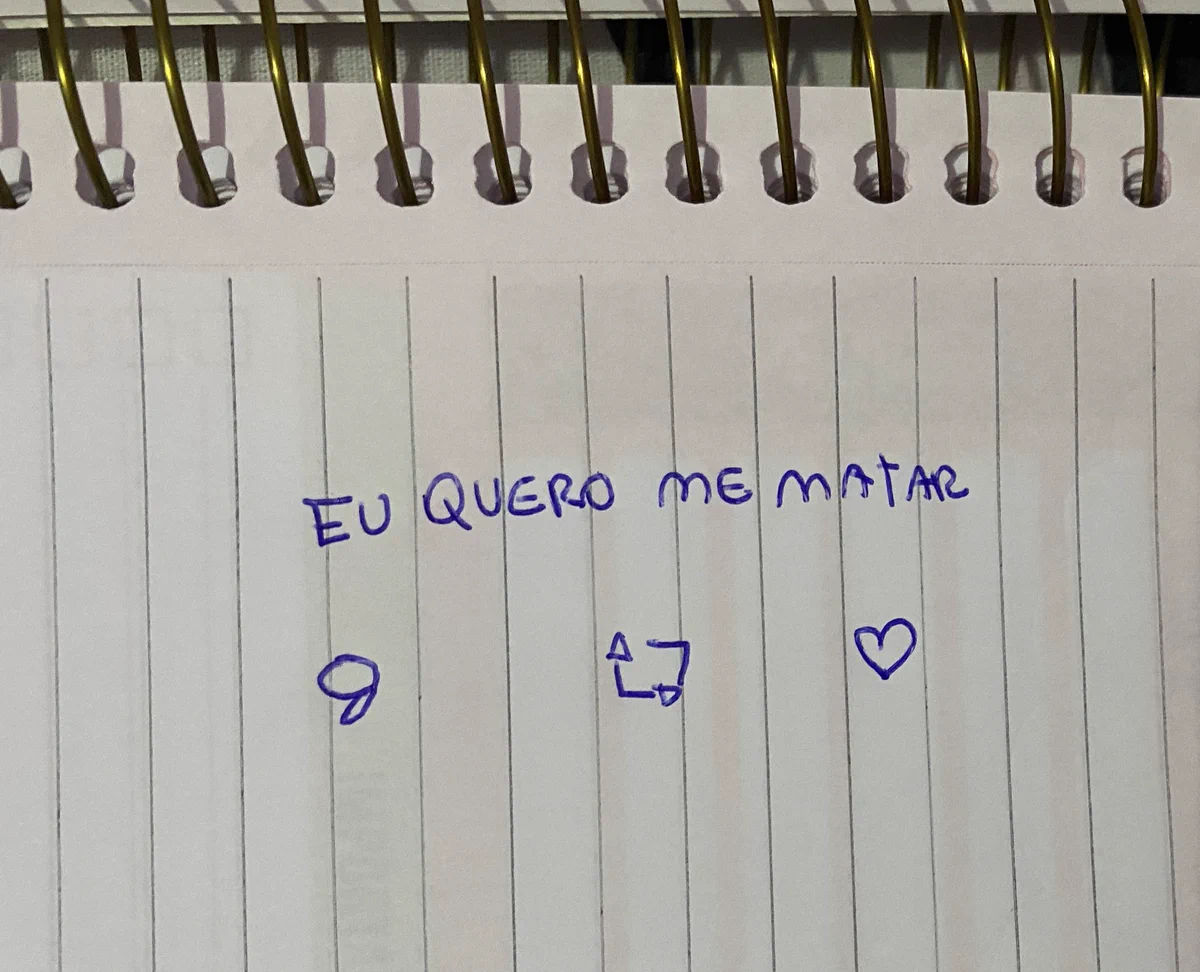 EU QUERO ME MATAR